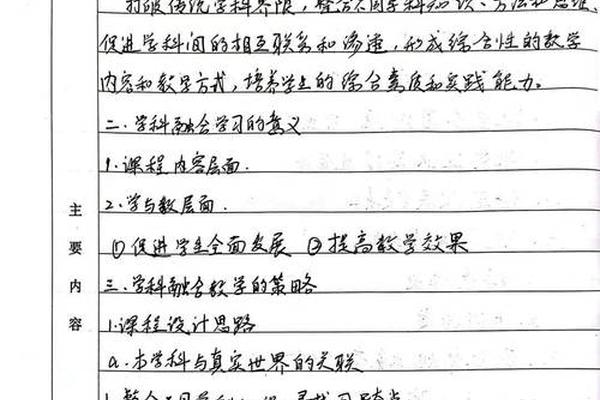 打破传统学科界限,整合不同学科知识、方法和思维,
促进学科间的相互联系和渗透,形成综合性的教学
内容和教学方式,培养学生的综合素质和实践能力。
二.学科融合学习的意义
1.课程内容层面.
2.学与教层面.
①促进学生全面发展 ②提高教学效果
三.学科融合教学的策略
1.课程设计思路
a.本学科与真实世界的关联
主要内容